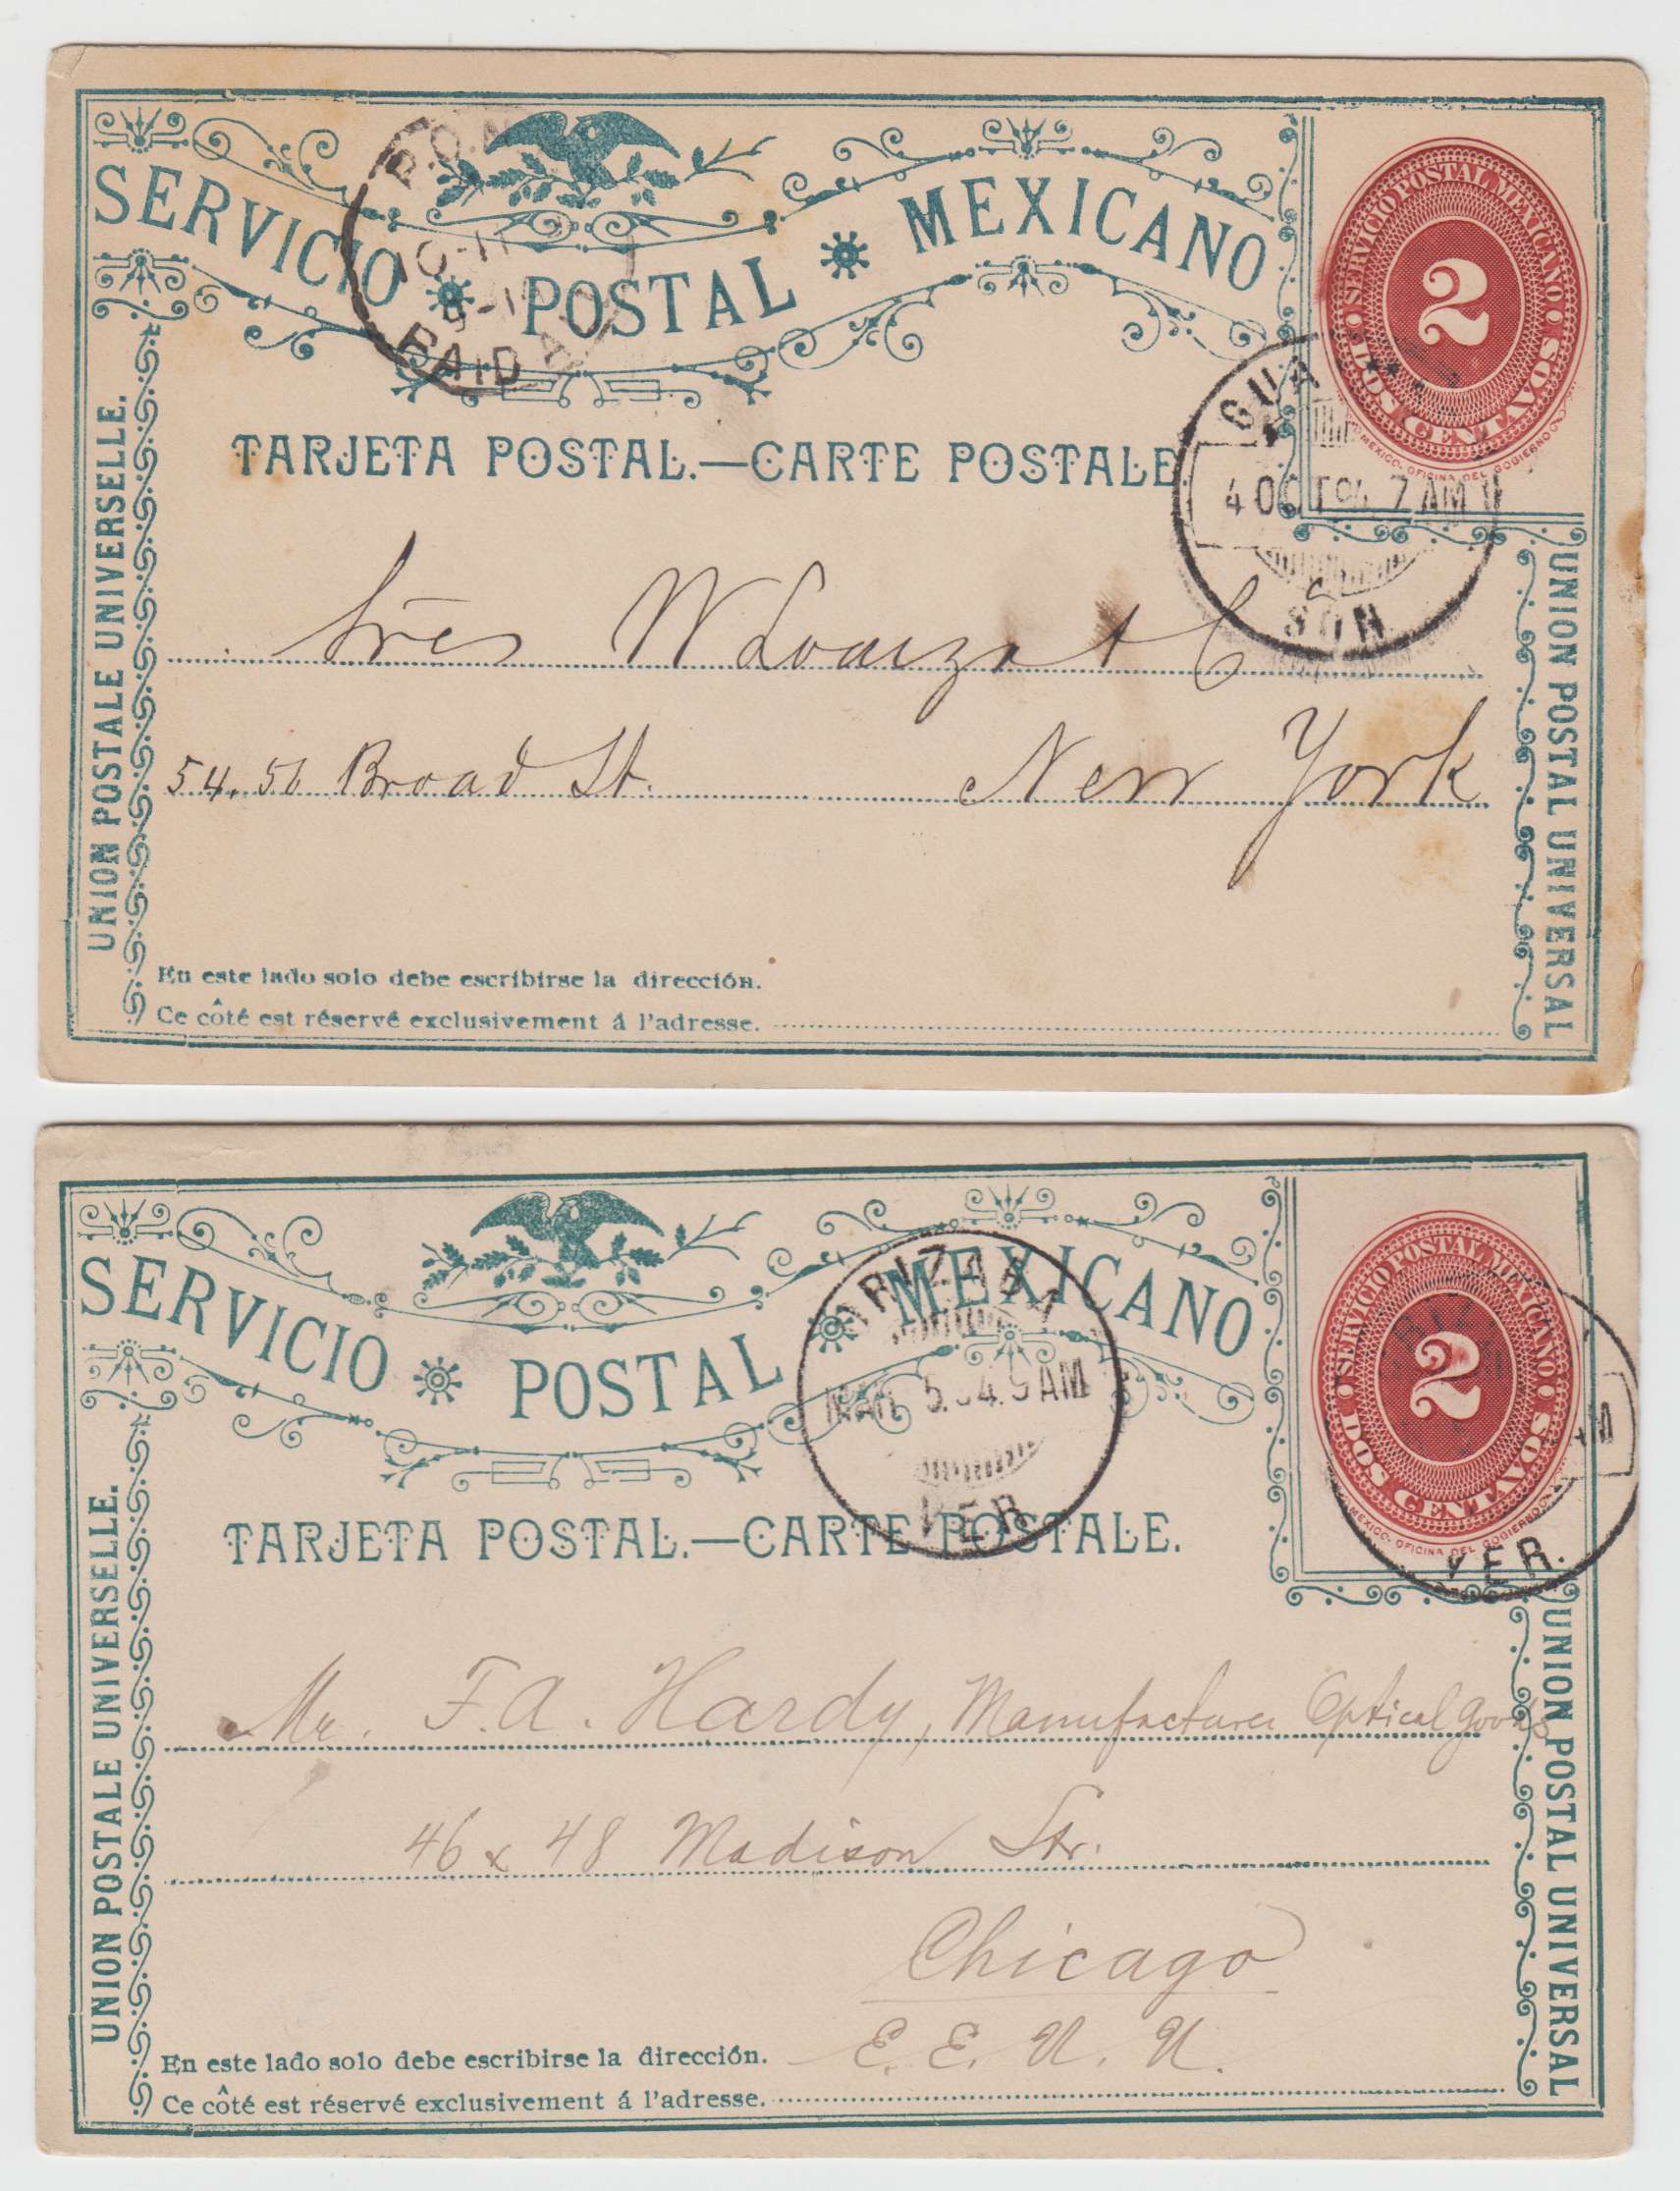 SERVICIO POSTAL MEXICANO
SERVICIO POSTAL MEXICANO
2
DOS CENTAVOS
MEXICO. OFICINA DEL GOBIERNO
P.O.N.
PAID
TARJETA POSTAL.—CARTE POSTALE
GUA
4 OCT 94 7 AM
SON
UNION POSTALE UNIVERSELLE.
UNION POSTAL UNIVERSAL
Sres W Loaiza & C
54.56 Broad St. New York
En este lado solo debe escribirse la dirección.
Ce côté est réservé exclusivement á l'adresse.
SERVICIO POSTAL MEXICANO
SERVICIO POSTAL MEXICANO
2
DOS CENTAVOS
MEXICO. OFICINA DEL GOBIERNO
ORIZABA
MAR 5.94.9 AM
VER
VER.
TARJETA POSTAL.—CARTE POSTALE.
UNION POSTALE UNIVERSELLE.
UNION POSTAL UNIVERSAL
Mr. F.A. Hardy, Manufacturer Optical goods
46 x 48 Madison Str.
Chicago
E. E. U. U.
En este lado solo debe escribirse la dirección.
Ce côté est réservé exclusivement á l'adresse.